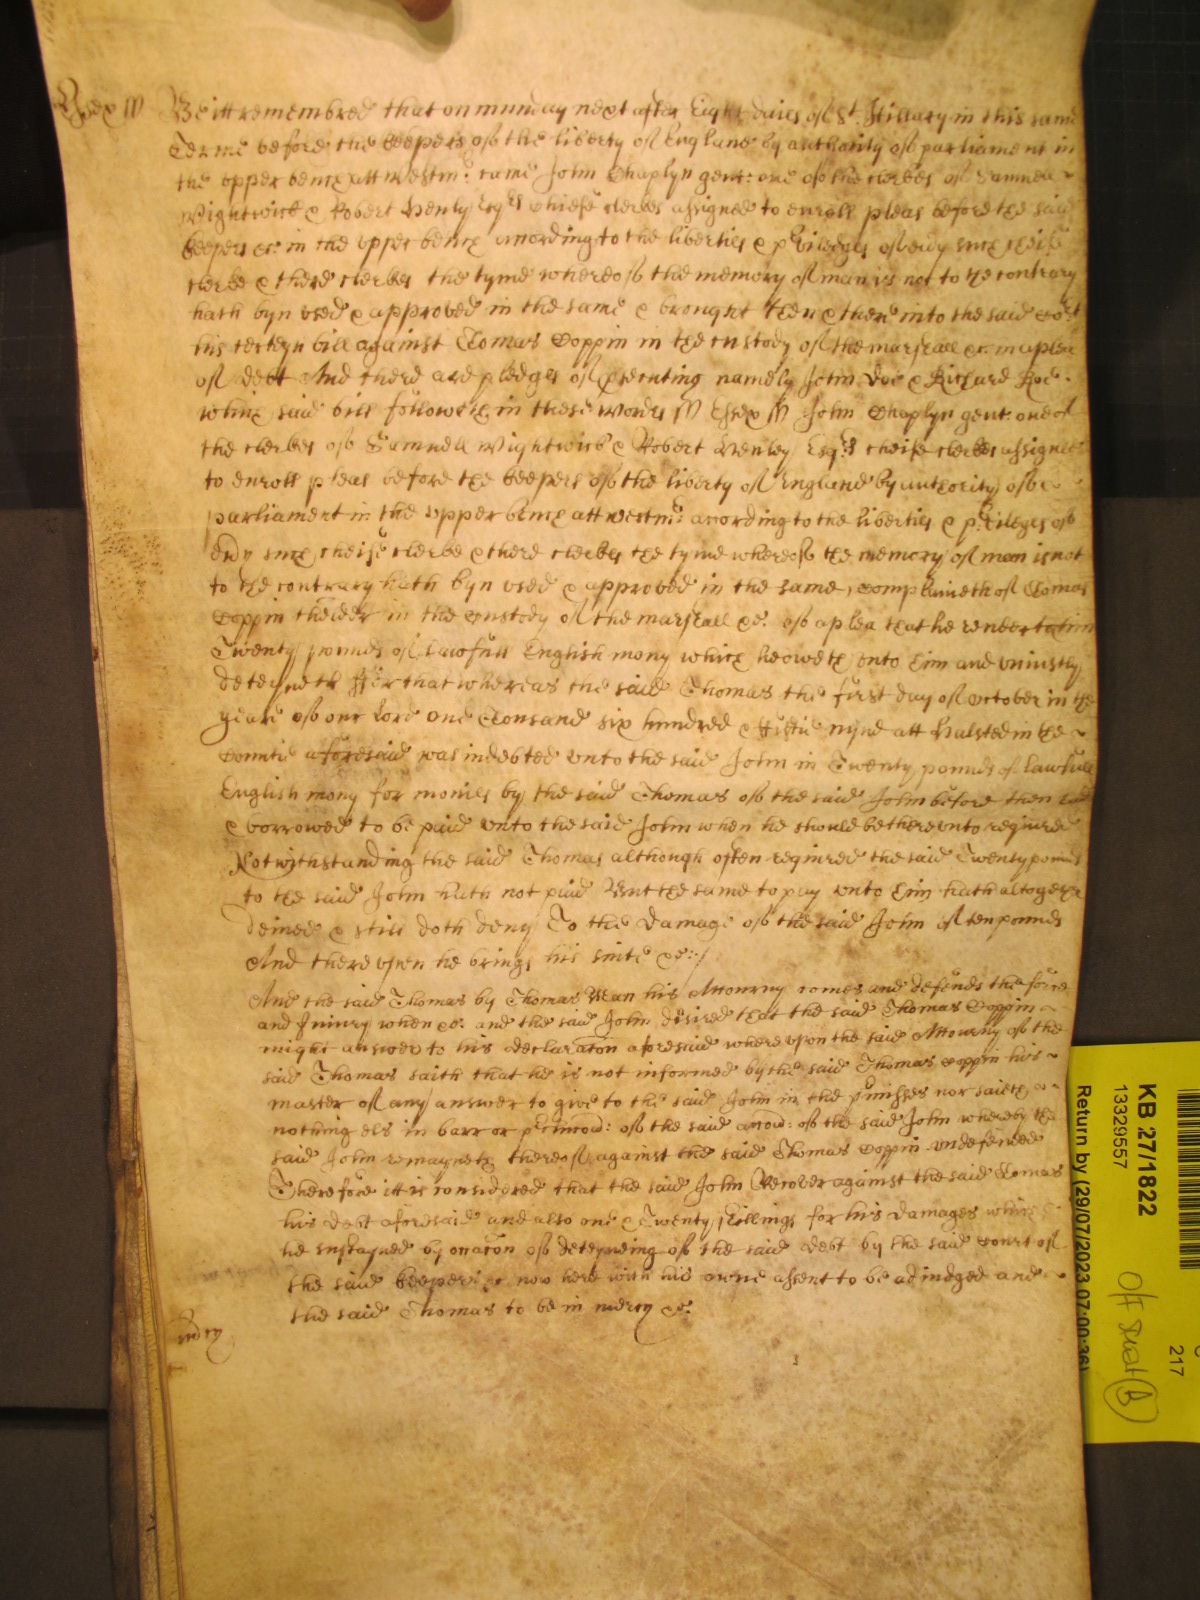 Essex ss Be itt remembred that on munday next after Eight daies of St. Hillary in this same
Terme before the keepers of the liberty of England by authority of parliament in
the upper bench att Westmr: came John Chaplyn gent: one of the clerkes of Samuell
Wightwick & Robert Henly Esqrs Chiefe clerkes assigned to enroll pleas before the said
keepers &c: in the upper bench according to the liberties & priviledges of every such cheife
clerke & there clerkes the tyme whereof the memory of man is not to the contrary
hath byn used & approved in the same & brought then & there into the said Cort
his certeyn bill against Thomas Coppin in the custody of the marshall &c. in a plea
of debt And there are pledges of prosecuting namely John Doe & Richard Roe.
which said bill followeth in these words ss Essex ss John Chaplyn gent: one of
the clerkes of Samuell Wightwick & Robert Henley Esqrs cheife clerkes assigned
to enroll pleas before the keepers of the liberty of England by authority of
parliament in the upper bench att Westmr: according to the liberties & privileges of
every such cheife clerke & there clerkes the tyme whereof the memory of man is not
to the contrary hath byn used & approved in the same, complaineth of Thomas
Coppin the in the custody of the marshall &c. of a plea that he render to him
Twenty pounds of lawfull English mony which he oweth unto him and uniustly
deteyneth For that whereas the said Thomas the first day of October in the
yeare of our Lord One Thousand six hundred & fiftie nyne att Halsted in the
Countie aforesaid was indebted unto the said John in Twenty pounds of lawfull
English mony for monies by the said Thomas of the said John before then had
& borrowed to be paid unto the said John when he should be thereunto required
Notwithstanding the said Thomas although often required the said Twenty pounds
to the said John hath not paid But the same to pay unto him hath altogether
denied & still doth deny To the damage of the said John of ten pounds
And thereupon he brings his suite &c:/
And the said Thomas by Thomas Man his Attourny comes and defends the force
and Iniury when &c. and the said John desired that the said Thomas Coppin
might answer to his declaracon aforesaid whereupon the said Attourny of the
said Thomas saith that he is not informed by the said Thomas Coppin his
master of any answer to give to the said John in the premisses nor saieth
nothing els in barr or of the said accon: of the said John whereby the
said John remayneth thereof against the said Thomas Coppin undefended
Therefore itt is considered that the said John Recover against the said Thomas
his debt aforesaid and also one & Twenty shillings for his damages which
he susteyned by occacon of deteyneing of the said debt by the said Court of
the said keepers &c now here with his owne assent to be adiudged and
the said Thomas to be in mercy &c.
mercy
KB 27/1822
13329557
Return by (29/07/2023 07:00:36)
217